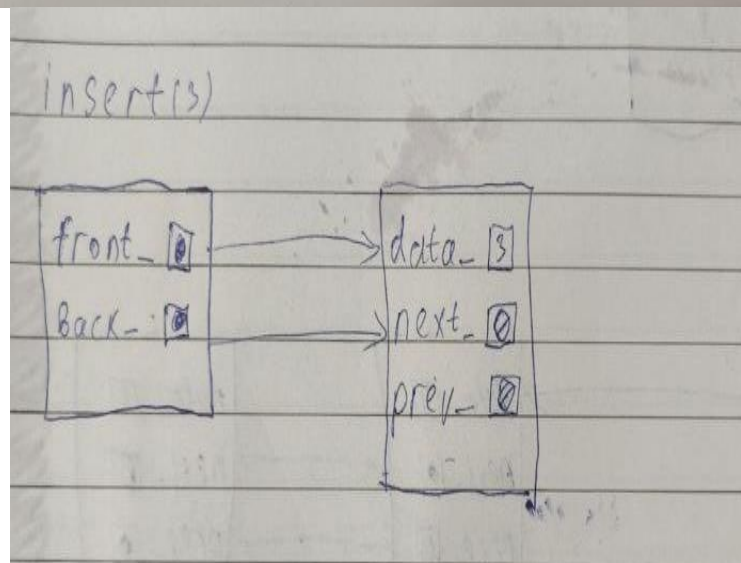 insert(3)
front_
Back_
data_ 3
next_
prev_